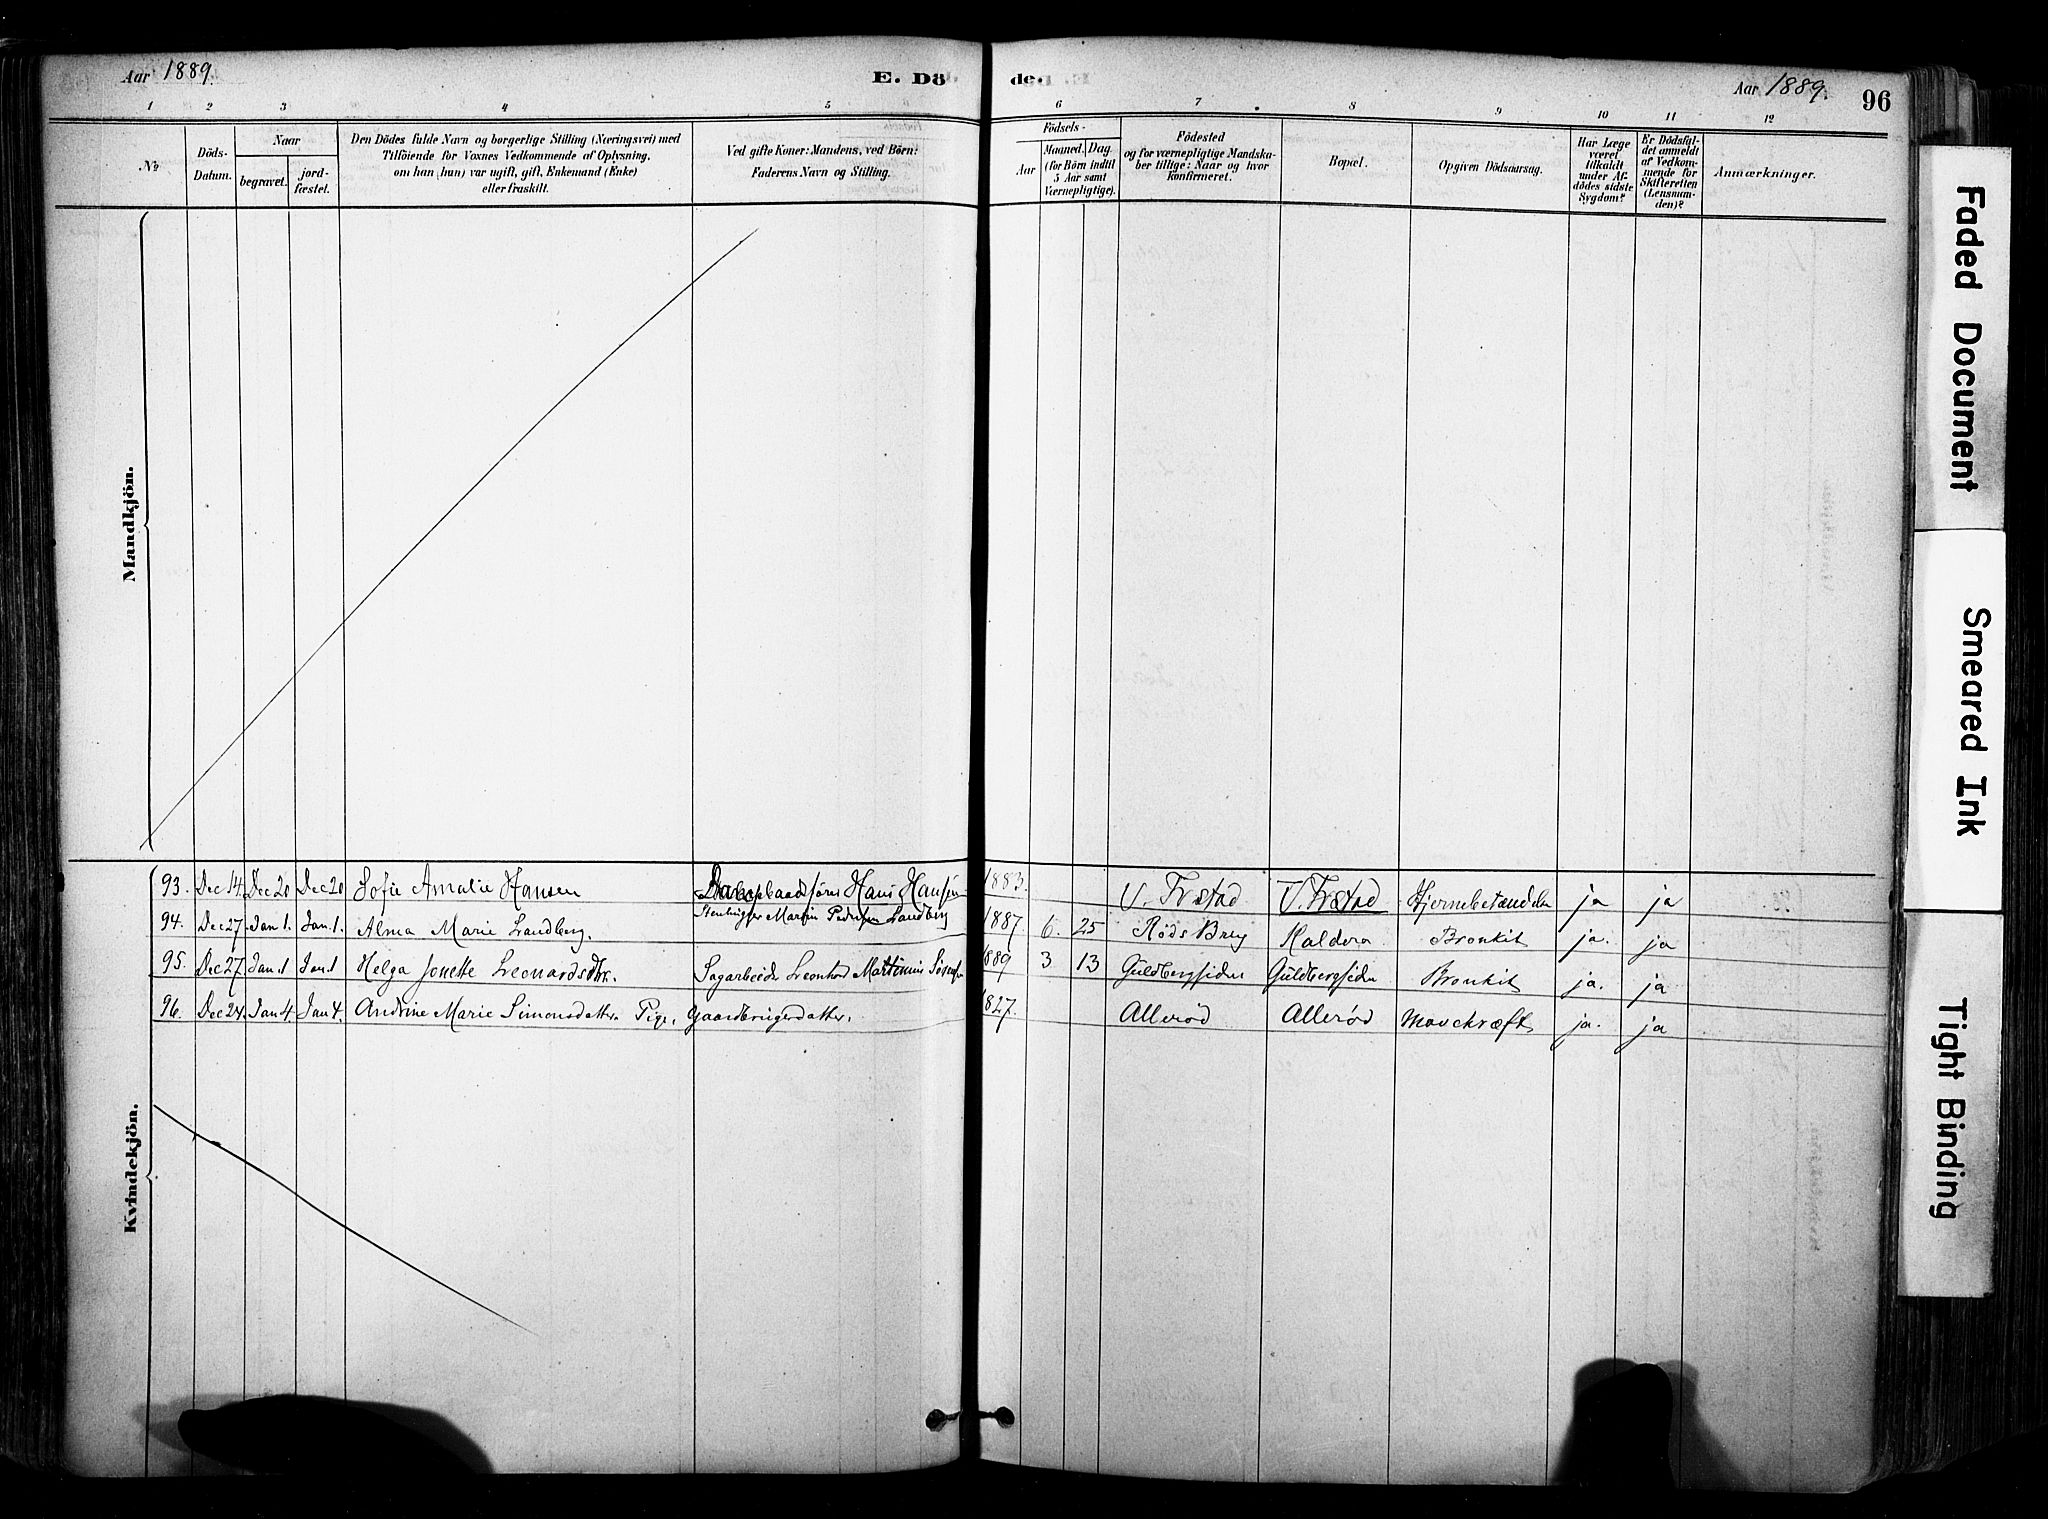 Aar 1889.
E. Dö
den
Aar 1889.
96
1 2 3 4 5 6 7 8 9 10 11 12
No
Döds-Datum.
Naar
begravet.
jord-fæstet.
Den Dödes fulde Navn og borgerlige Stilling (Næringsvei) med
Tilföiende for Voxnes Vedkommende af Oplysning,
om han (hun) var ugift, gift, Enkemand (Enke)
eller fraskilt.
Ved gifte Koner: Mandens, ved Börn:
Faderens Navn og Stilling.
Födsels-
Aar
Maaned. Dag
(for Börn indtil
5 Aar samt
Værnepligtige).
Födested
og for værnepligtige Mandska-
ber tillige: Naar og hvor
konfirmeret.
Bopæl.
Opgiven Dödsaarsag.
Har Læge
været
tilkaldt
under Af-
dödes sidste
Sygdom?
Er Dödsfal-
det anmeldt
af Vedkom-
mende for
Skifteretten
(Lensman-
den)?
Anmærkninger.
Mandkjön.
Kvindekjön.
93. Dec 14. Dec 20 Dec 20 Sofie Amalie Hansen Hans Hansen 1883. ja ja
94. Dec 27. Jan 1. Jan. 1. Alma Marie Landberg. Stenhugger Martin Pedersen Landberg 1887. 6. 25 Røds Brug Haldera Bronkit ja. ja
95. Dec 27. Jan. 1 Jan. 1 Helga Jonette Leonardsdtr. Sagarbeider Leonhard Martinius 1889 3 13 Guldbergsiden Guldbergsiden Bronkit ja. ja
96. Dec 24. Jan 4. Jan 4. Andrine Marie Simonsdatter. Pige, Gaardbrugerdatter. 1827. Allerød Allerød Mavekræft ja. ja
Faded Document
Smeared Ink
Tight Binding